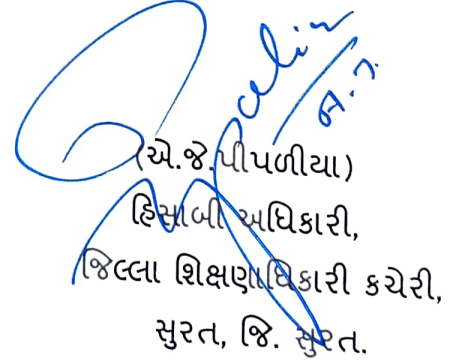 (એ.જે.પીપળીયા)
હિસાબી અધિકારી,
જિલ્લા શિક્ષણાધિકારી કચેરી,
સુરત, જિ. સુરત.